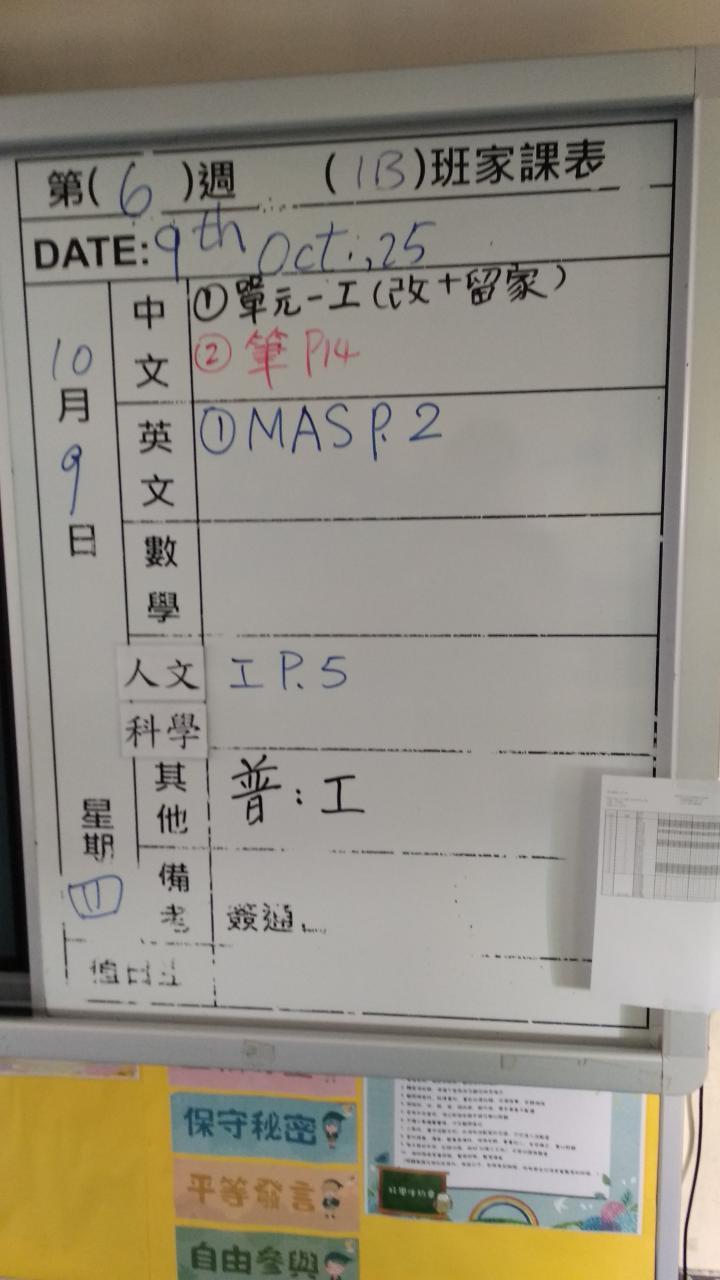 第(6)週 (1B)班家課表
DATE: 9th Oct.,25
10月9日
星期四
中文
①單元一工(改+留家)
②筆P14
英文
①MAS P.2
數學
人文
科學
工 P.5
其他
普:工
備考
簽通
值日生
保守秘密
平等發言
自由參與